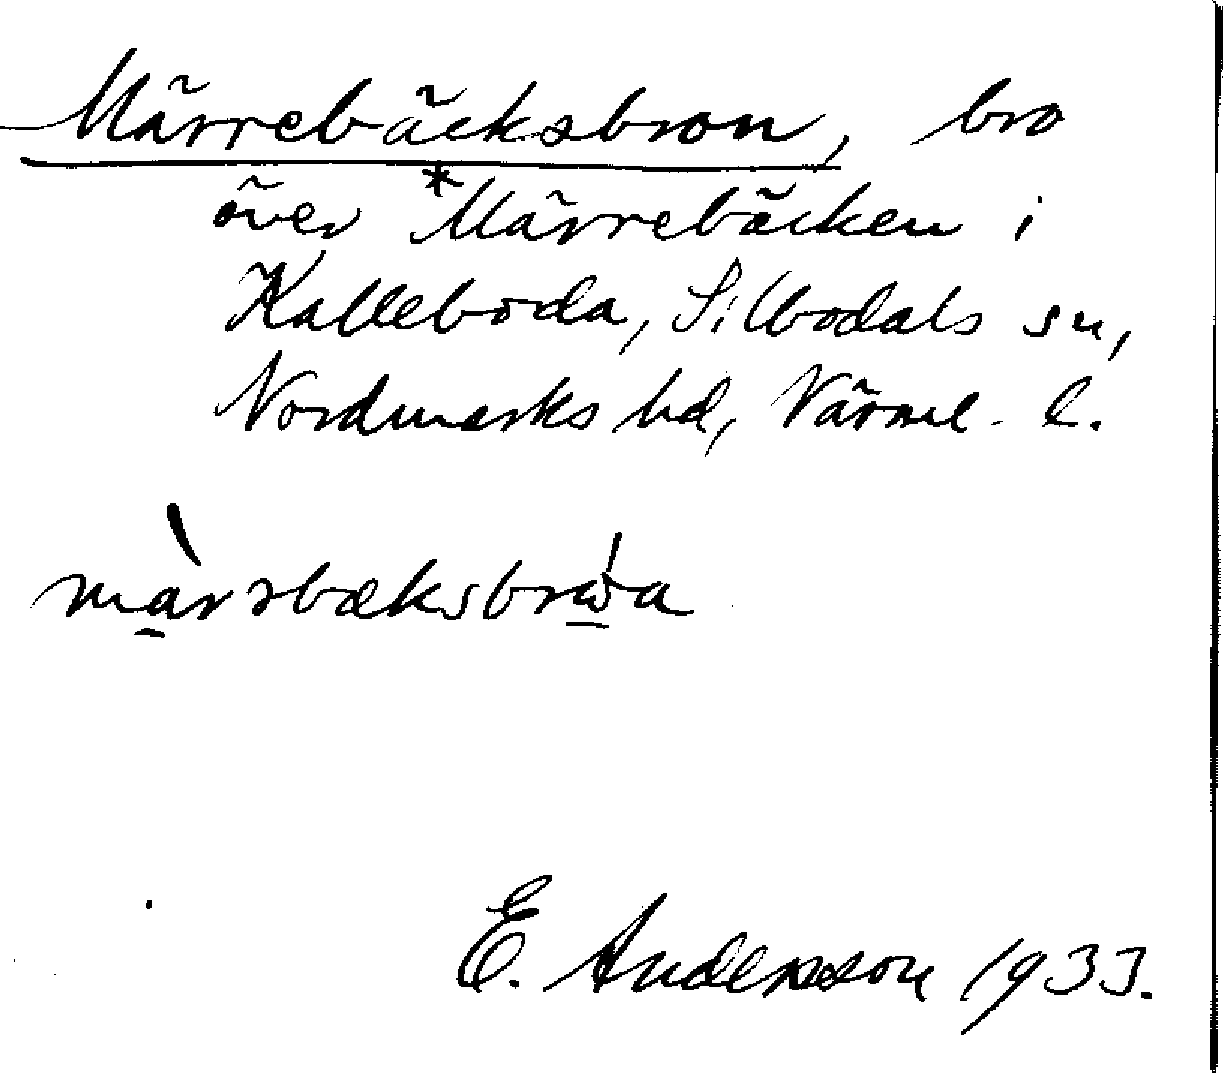 Märrebäcksbron, bro
över *Märrebäcken i
Kalleboda, Silbodals sn,
Nordmarks hd, Värml. l.
E. Andersson 1933.